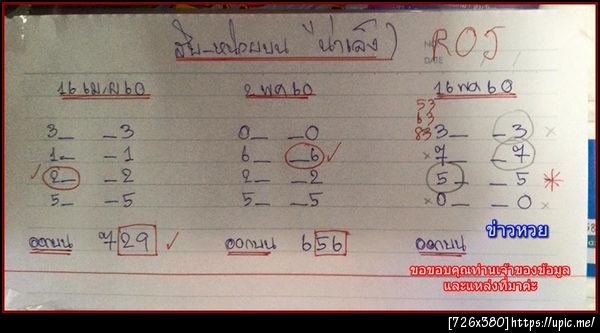 สิบ-หน่วยบน (น่าเล็ง) ROJ
NO.
DATE
16 เม.ย 60 2 พค 60 16 พค 60
53
63
83
3_ _3 0_ _0 3_ _3 ×
1_ _1 6_ _6 ✓ × 7_ _7
✓ 2_ _2 2_ _2 5_ _5 *
5_ _5 5_ _5 × 0_ _0 ×
ข่าวหวย
ออกบน 729 ✓ ออกบน 656 ออกบน
ขอขอบคุณท่านเจ้าของข้อมูล
และแหล่งที่มาค่ะ
[726x380]https://upic.me/